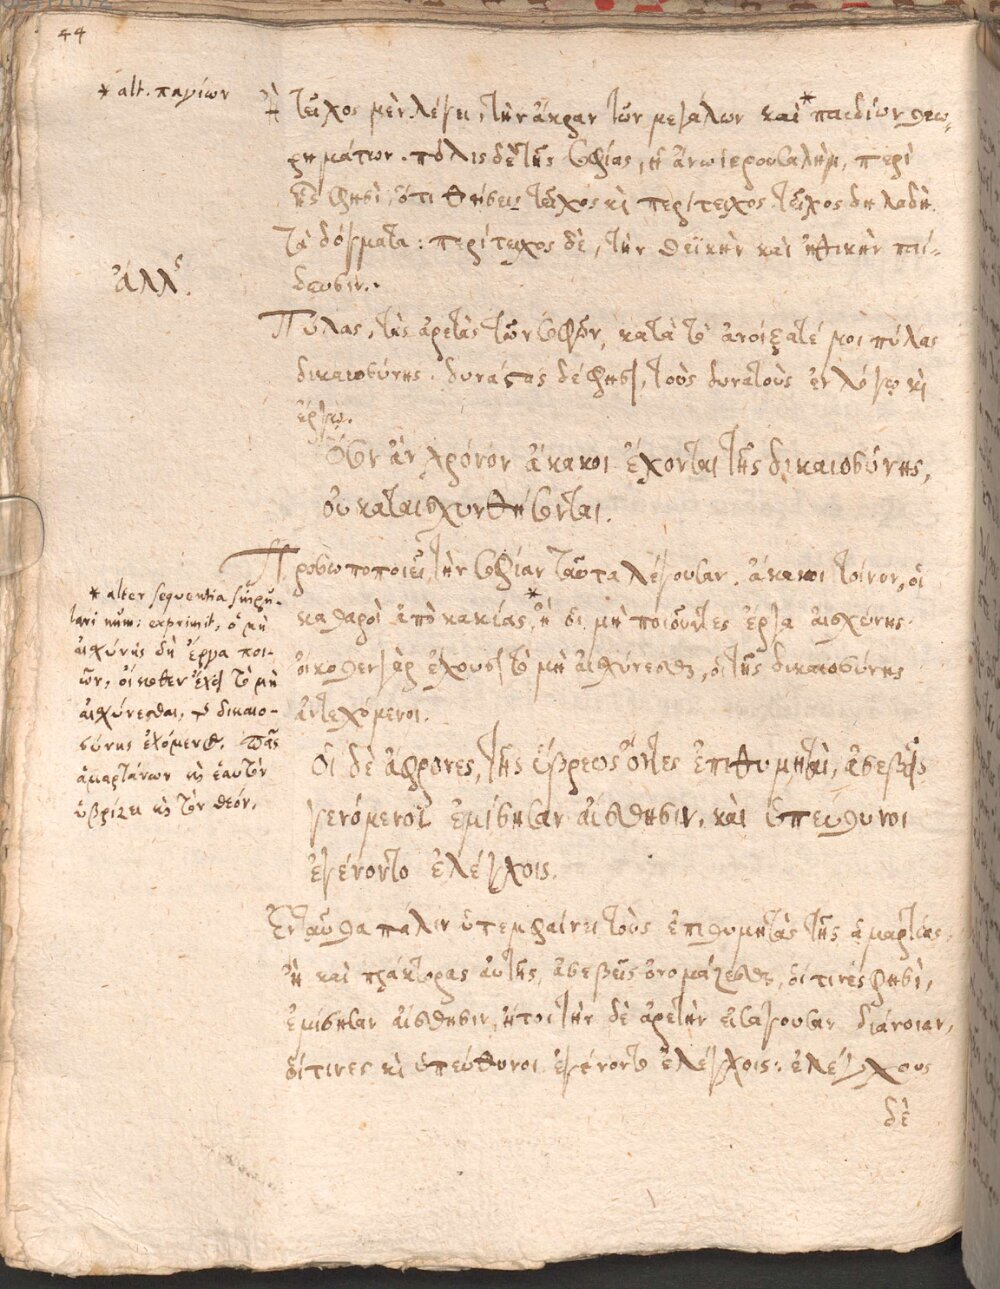 44
* alt. παγίων
Ἢ τεῖχος μὲν λέγει, τὴν ἄκραν τῶν μεγάλων καὶ * παιδίων θεω-
ρημάτων. πόλις δὲ τῆς σοφίας, ἡ ἄνω ἱερουσαλὴμ, περὶ
ἧς φησὶ, ὅτι θήσεις τεῖχος κὶ περίτειχος τεῖχος δηλαδὴ
τὰ δόγματα: περίτειχος δὲ, τὴν θεϊκὴν καὶ ἠθικὴν παί-
δευσιν.
ἄλλς.
Πύλας, τὰς ἀρετὰς τῶν σοφῶν, κατὰ τὸ ἀνοίξατέ μοι πύλας
δικαιοσύνης. δυνάστας δέ φησι, τοὺς δυνατοὺς ἐν λόγῳ κὶ
ἔργῳ.
Ὅσον ἂν χρόνον ἄκακοι ἔχονται τῆς δικαιοσύνης,
οὐ καταισχυνθήσονται.
Προσωποποιεῖ τὴν σοφίαν ταῦτα λέγουσαν. ἄκακοι τοίνυν, οἱ
καθαροὶ ἀπὸ κακίας, * ἢ οἱ μὴ ποιοῦντες ἔργα αἰσχύνης.
οἴκοθεν γὰρ ἔχουσι τὸ μὴ αἰσχύνεσθαι, οἱ τῆς δικαιοσύνης
ἀντεχόμενοι.
* alter sequentia
exprimit, ὁ μὴ
αἰσχύνης δὴ ἔργα ποι-
ῶν, οἴκοθεν ἔχει τὸ μὴ
αἰσχύνεσθαι, δικαιο-
σύνης ἐχόμενος. Πᾶς
ἁμαρτάνων κὶ ἑαυτὸν
ὑβρίζει κὶ τὸν θεόν.
Οἱ δὲ ἄφρονες, τῆς ὕβρεως ὄντες ἐπιθυμηταὶ, ἀσεβεῖς
γενόμενοι ἐμίσησαν αἴσθησιν, καὶ ὑπεύθυνοι
ἐγένοντο ἐλέγχοις.
Ἐνταῦθα πάλιν ὑπεμφαίνει τοὺς ἐπιθυμητὰς τῆς ἁμαρτίας,
ἢ καὶ πράκτορας αὐτῆς, ἀσεβεῖς ὀνομάζεσθαι, οἵτινες φησὶ,
ἐμίσησαν αἴσθησιν, ἤτοι τὴν δὲ ἀρετὴν εἰσάγουσαν διάνοιαν,
οἵτινες κὶ ὑπεύθυνοι ἐγένοντο ἐλέγχοις: ἐλέγχους
δὲ